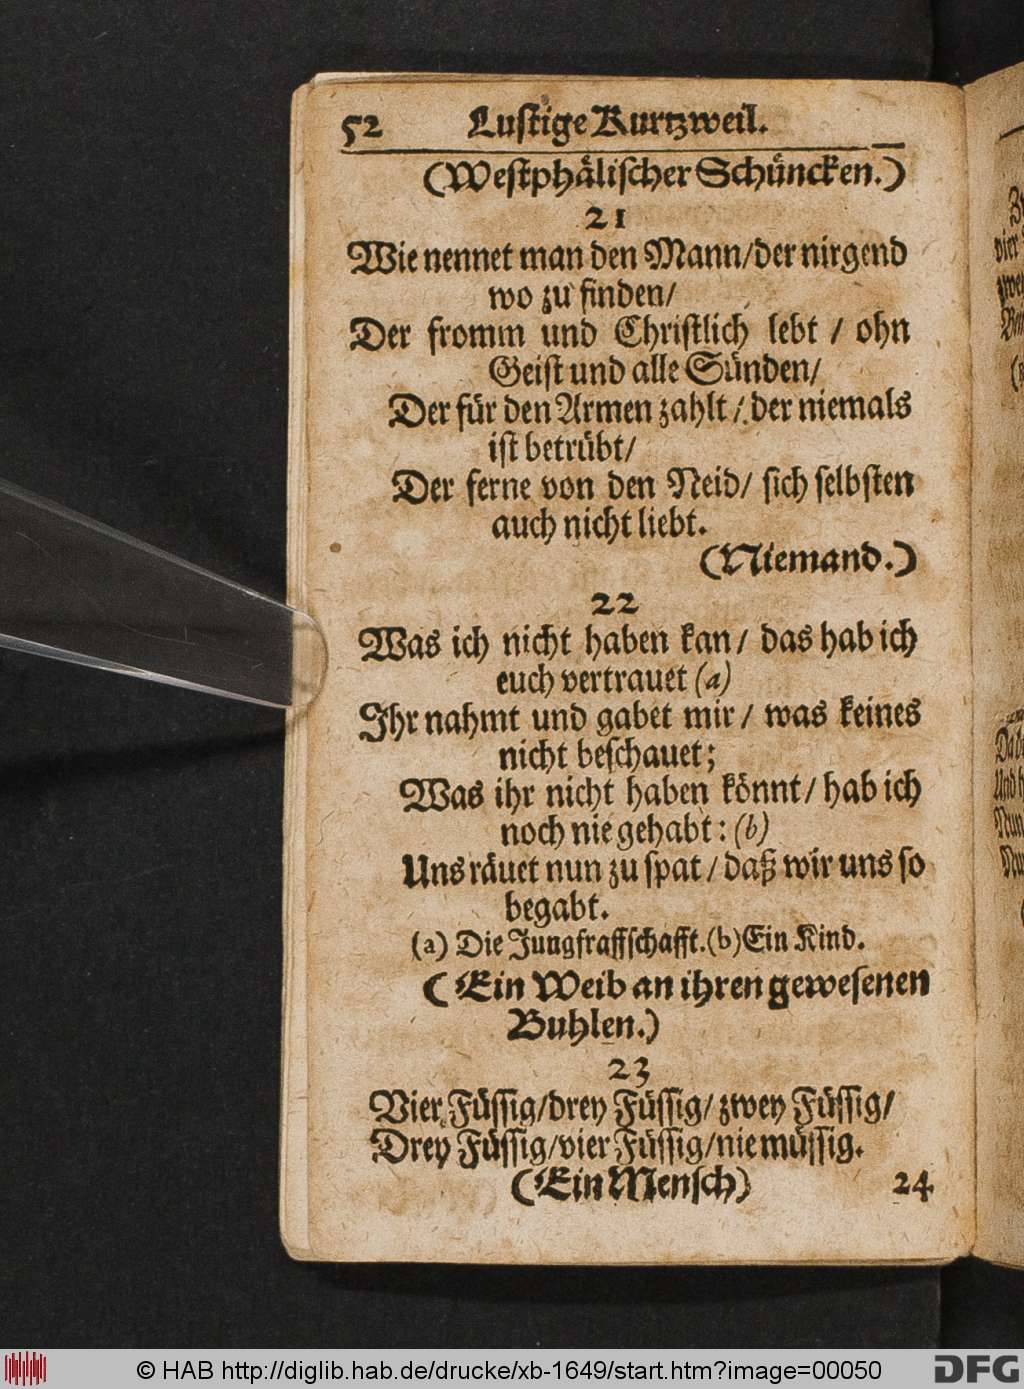 52 Lustige Kurtzweil.
(Westphälischer Schüncken.)
21
Wie nennet man den Mann/der nirgend
wo zu finden/
Der fromm und Christlich lebt / ohn
Geist und alle Sünden/
Der für den Armen zahlt /.der niemals
ist betrübt/
Der ferne von den Neid/ sich selbsten
auch nicht liebt.
(Niemand.)
22
Was ich nicht haben kan/ das hab ich
euch vertrauet (a)
Ihr nahmt und gabet mir/ was keines
nicht beschauet;
Was ihr nicht haben könnt/ hab ich
noch nie gehabt: (b)
Uns räuet nun zu spat/daß wir uns so
begabt.
(a) Die Jungfraffschafft.(b)Ein Kind.
( Ein Weib an ihren gewesenen
Buhlen.)
23
Vier Füssig/drey Füssig/ zwey Füssig/
Drey Füssig/vier Füssig/nie müssig.
(Ein Mensch)
24
© HAB http://diglib.hab.de/drucke/xb-1649/start.htm?image=00050
DFG